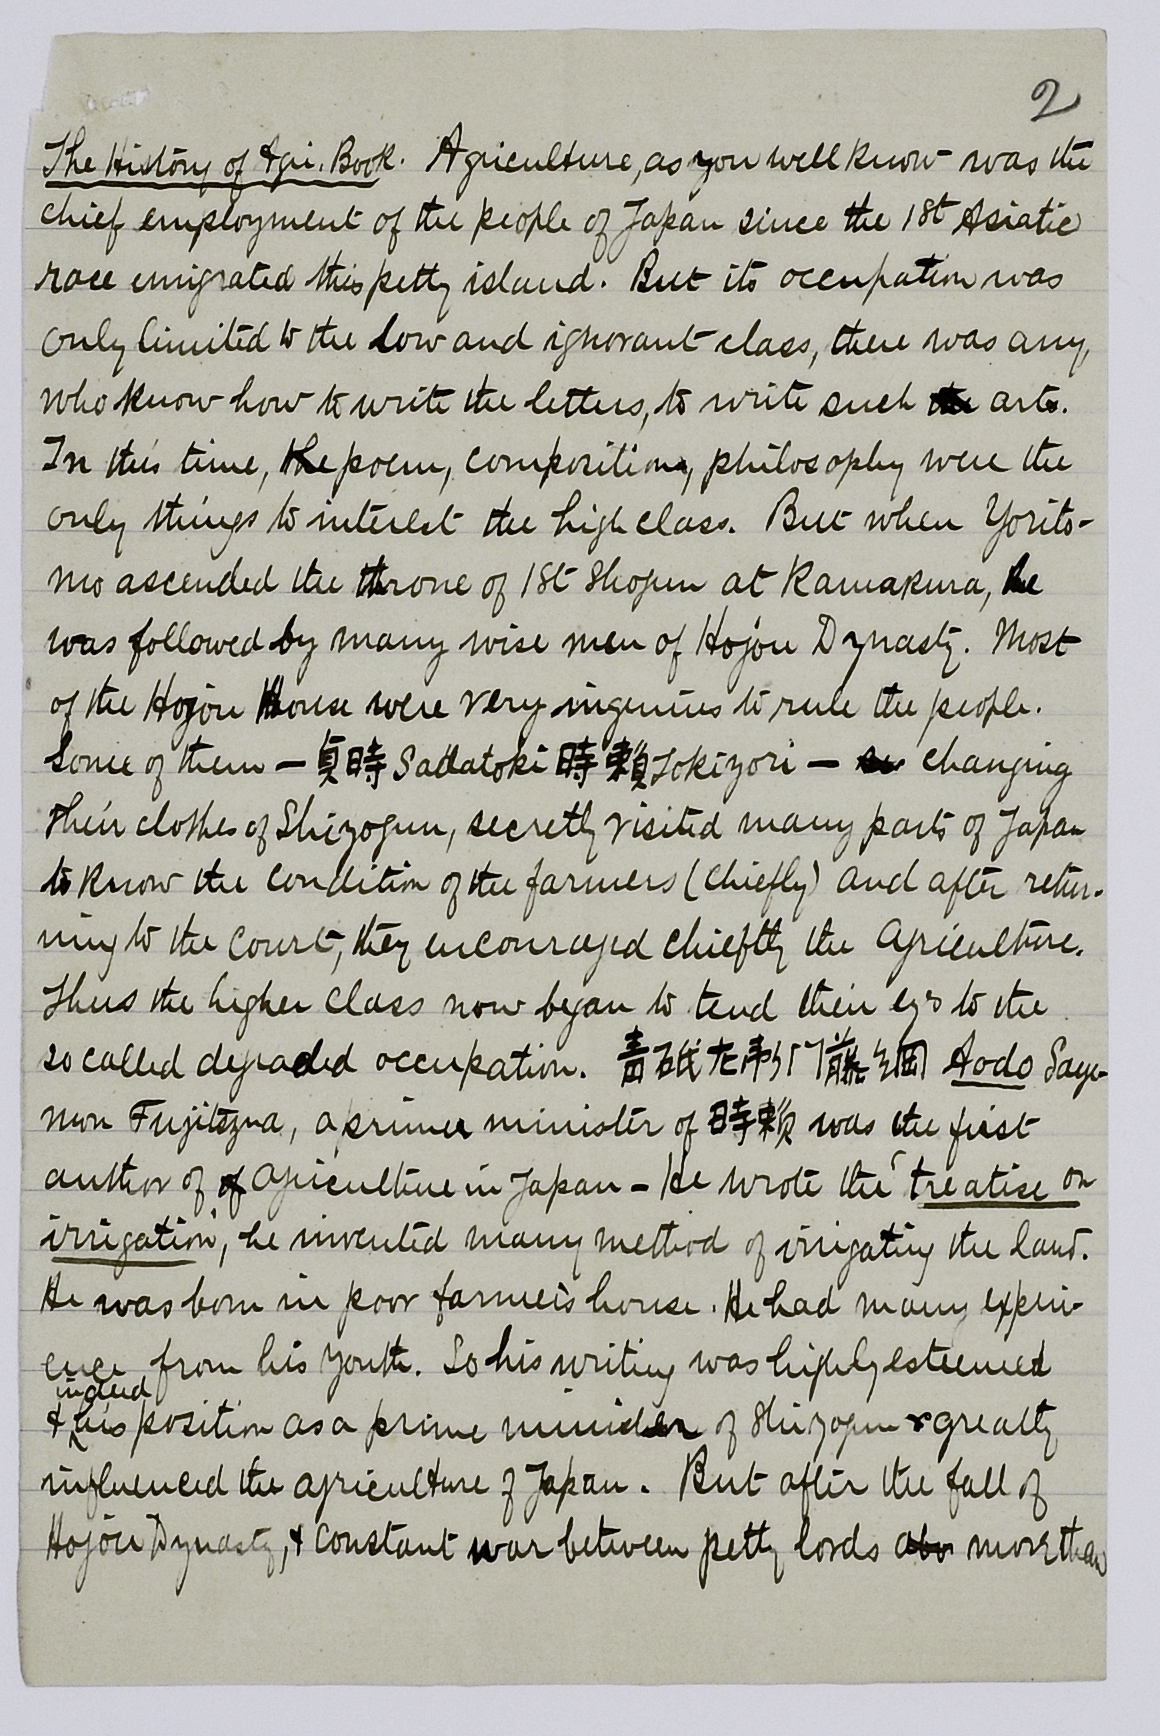 2
The History of Agri. Book. Agriculture, as you well know was the
chief employment of the people of Japan since the 1st Asiatic
race emigrated this petty island. But its occupation was
only limited to the low and ignorant class, there was any,
who know how to write the letters, to write such the arts.
In this time, the poem, composition, philosophy were the
only things to interest the high class. But when Yorito-
mo ascended the throne of 1st Shogun at Kamakura, he
was followed by many wise men of Hojou Dynasty. Most
of the Hojou House were very ingenius to rule the people.
Some of them — 貞時 Sadatoki 時賴 Tokiyori — changing
their clothes of Shizogun, secretly visited many parts of Japan
to know the condition of the farmers (chiefly) and after retur-
ning to the court, they encouraged chieftly the agriculture.
Thus the higher class now began to tend their eys to the
so called degraded occupation. 青砥左衛門藤綱 Aodo Saye-
mon Fujitszna, a prime minister of 時賴 was the first
author of of agriculture in Japan – He wrote the 'treatise on
irrigation', he invented many method of irrigating the land.
He was born in poor farmer's house. He had many experi-
ence from his youth. So his writing was highly esteemed
indeed
& his position as a prime minister of Shizogun & greatly
influenced the agriculture of Japan. But after the fall of
Hojou Dynasty, & constant war between petty lords more than